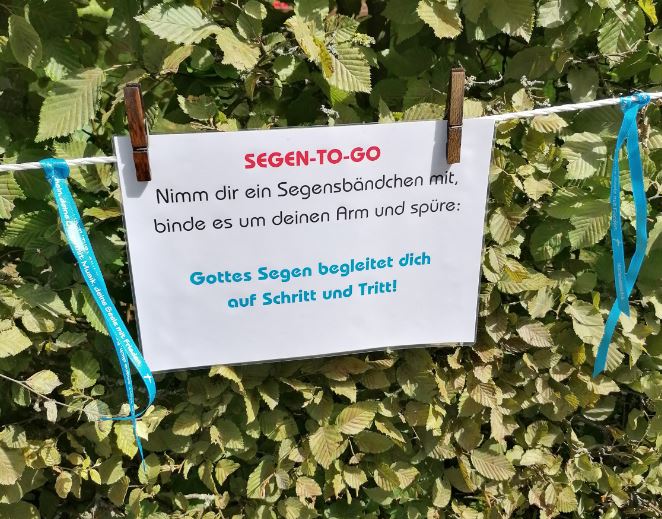 SEGEN-TO-GO
Nimm dir ein Segensbändchen mit,
binde es um deinen Arm und spüre:
Gottes Segen begleitet dich
auf Schritt und Tritt!